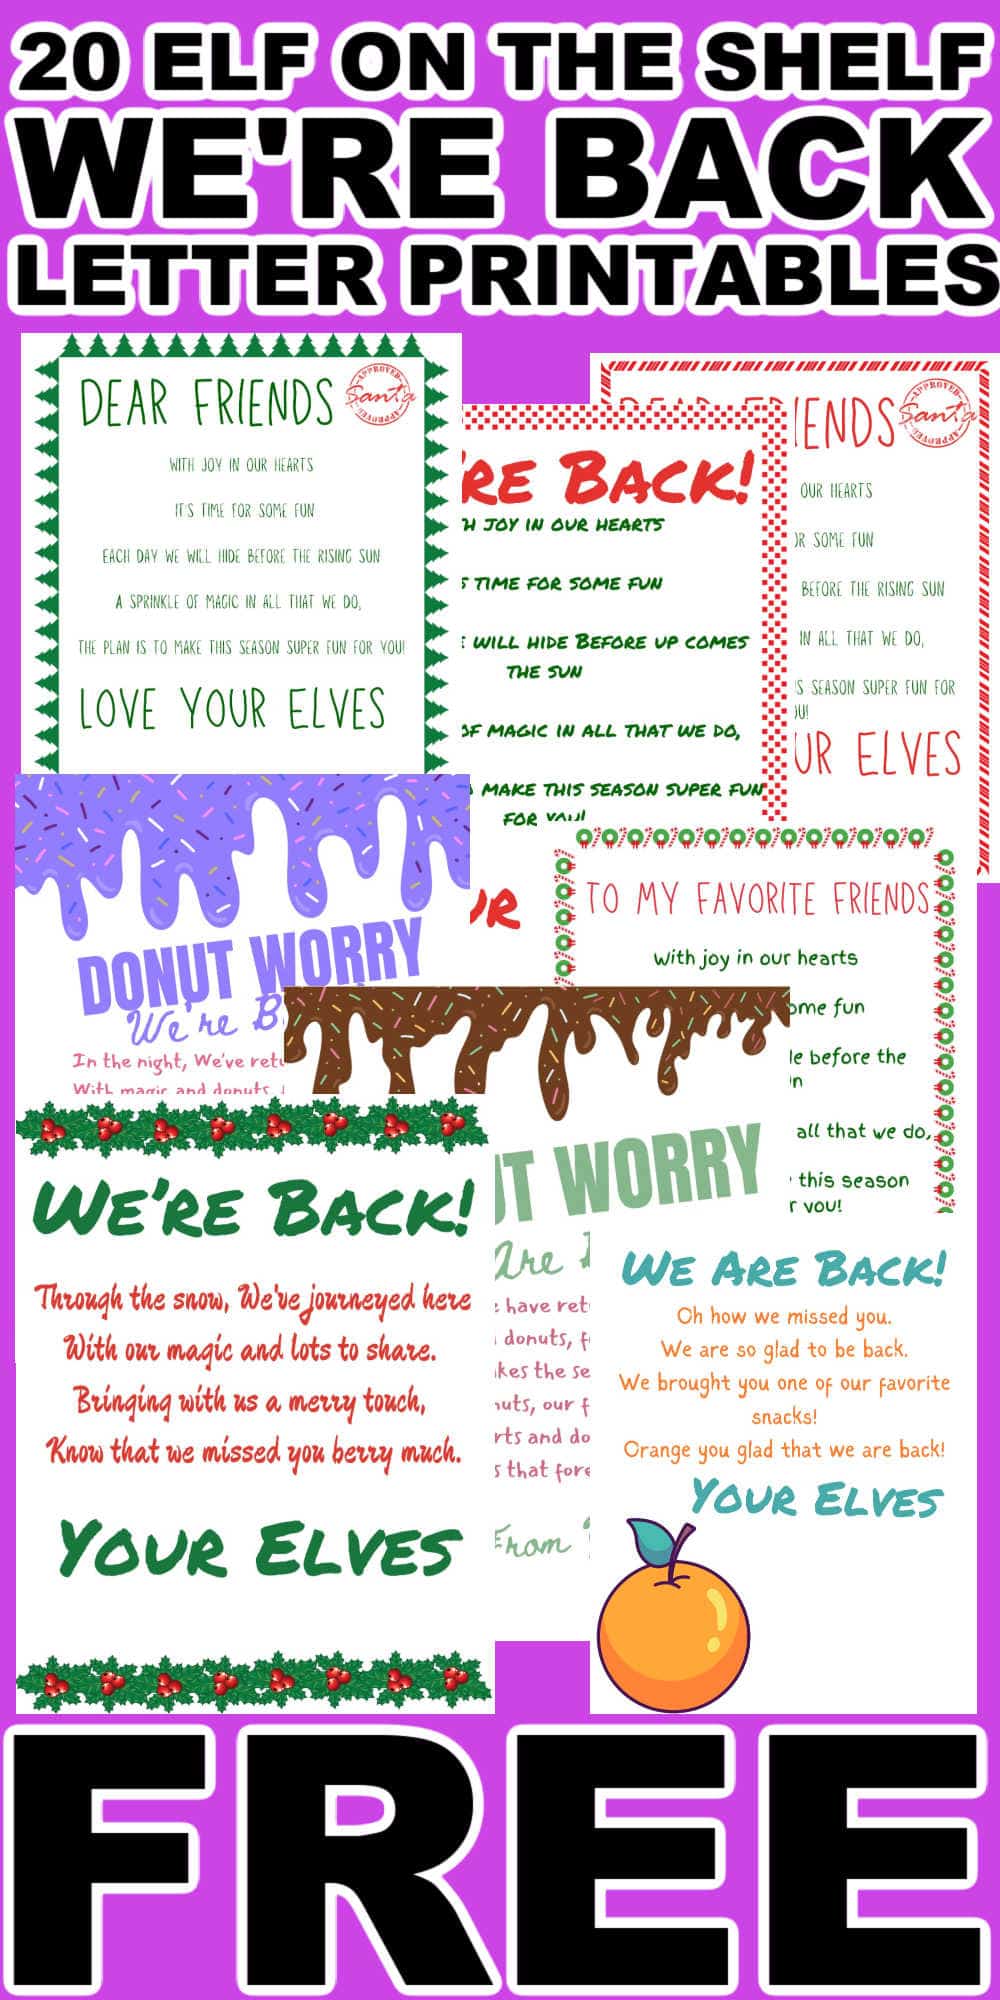 20 ELF ON THE SHELF
WE'RE BACK
LETTER PRINTABLES
DEAR FRIENDS
APPROVED
Santa
APPROVED
WITH JOY IN OUR HEARTS
IT'S TIME FOR SOME FUN
EACH DAY WE WILL HIDE BEFORE THE RISING SUN
A SPRINKLE OF MAGIC IN ALL THAT WE DO,
THE PLAN IS TO MAKE THIS SEASON SUPER FUN FOR YOU!
LOVE YOUR ELVES
RE BACK!
H JOY IN OUR HEARTS
TIME FOR SOME FUN
WILL HIDE BEFORE UP COMES
THE SUN
OF MAGIC IN ALL THAT WE DO,
MAKE THIS SEASON SUPER FUN
FOR YOU!
UR
DEAR FRIENDS
APPROVED
Santa
APPROVED
OUR HEARTS
OR SOME FUN
BEFORE THE RISING SUN
IN ALL THAT WE DO,
S SEASON SUPER FUN FOR
OU!
UR ELVES
DONUT WORRY
We're B
In the night, We've retu
With magic and donuts,
TO MY FAVORITE FRIENDS
With joy in our hearts
ome fun
de before the
n
all that we do,
this season
r you!
UT WORRY
Are
have ret
donuts, f
kes the se
nuts, our f
rts and do
s that fore
From
WE'RE BACK!
Through the snow, We've journeyed here
With our magic and lots to share.
Bringing with us a merry touch,
Know that we missed you berry much.
YOUR ELVES
WE ARE BACK!
Oh how we missed you.
We are so glad to be back.
We brought you one of our favorite
snacks!
Orange you glad that we are back!
YOUR ELVES
FREE